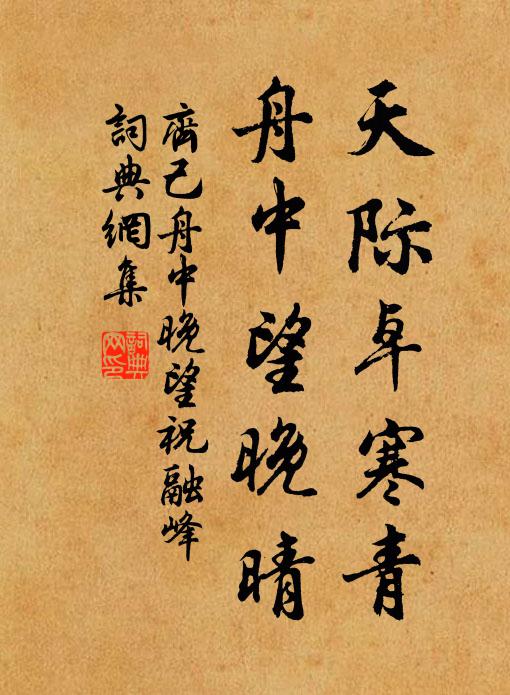 天际卓寒青
舟中望晚晴
齊己舟中晚望祝融峰
詞典網集
詞典網印